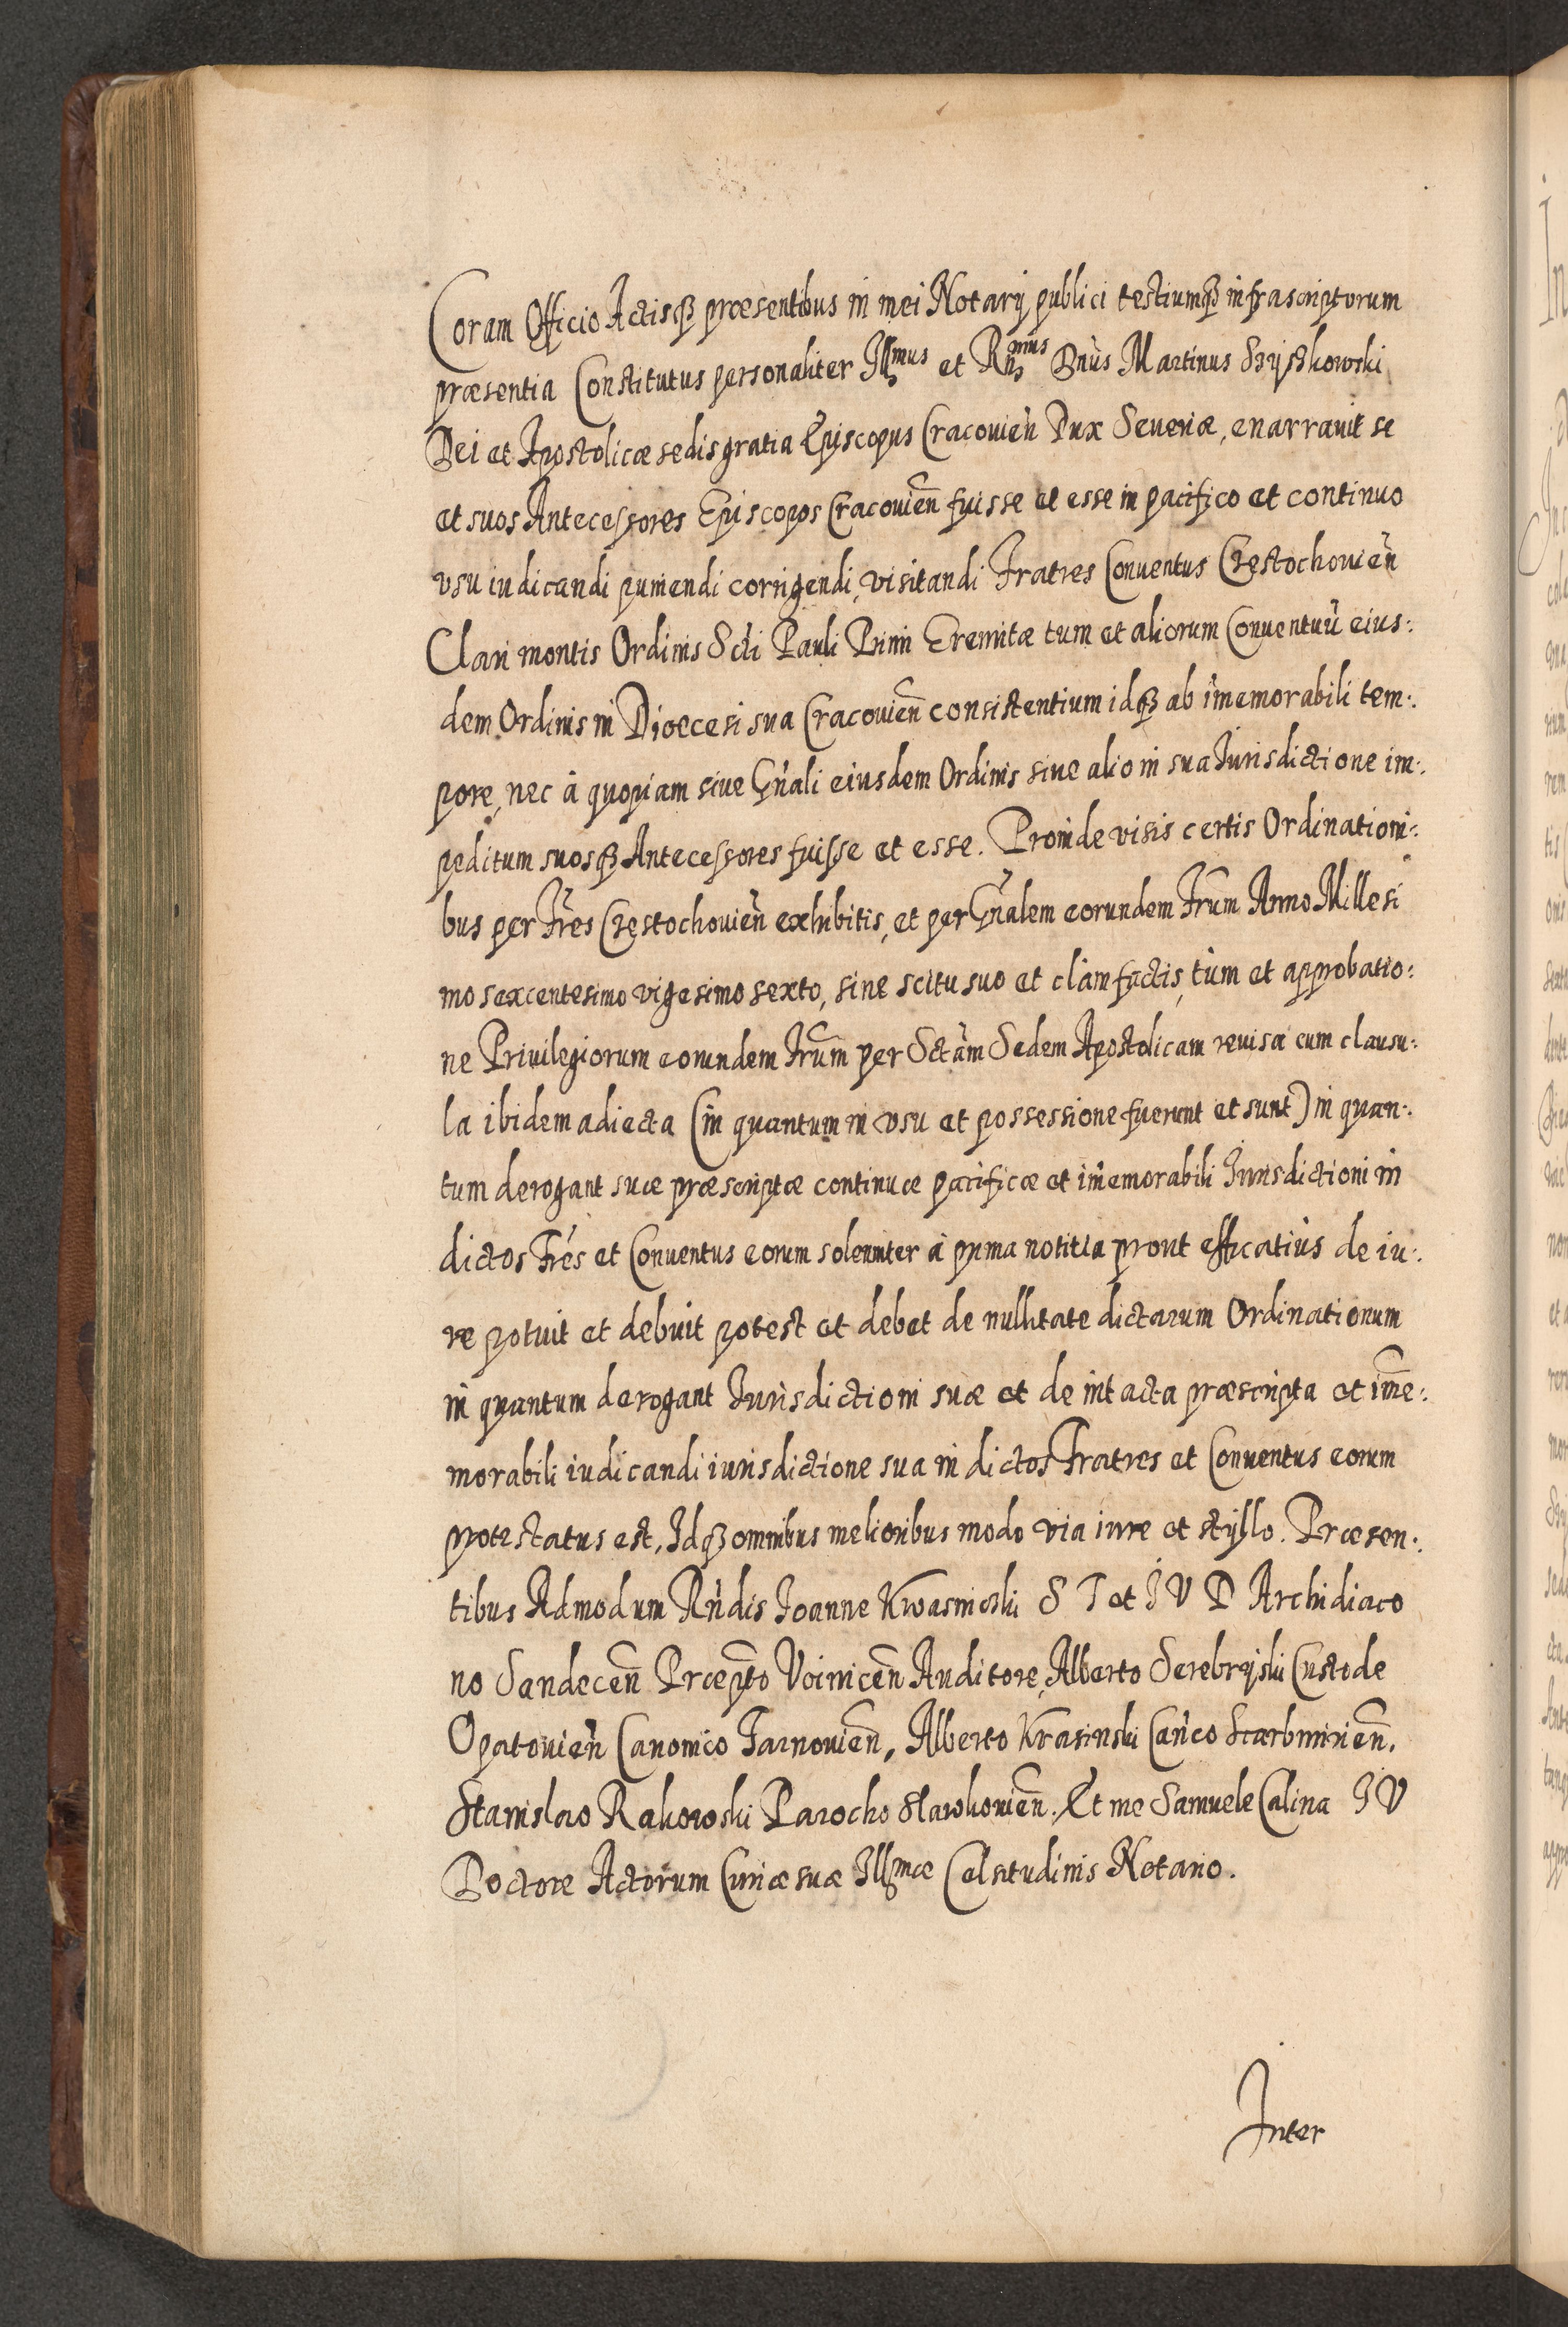 Coram Officio Actisq3 præsentibus in mei Notarij publici testiumq3 infrascriptorum
præsentia Constitutus personaliter Ill̃mus et Rñmus Dñus Martinus Szyszkowski
Dei et Apostolicæ sedis gratia Episcopus Cracouieñ Dux Seueriæ, enarrauit se
et suos Antecessores Episcopos Cracouieñ fuisse et esse in pacifico et continuo
vsu iudicandi puniendi corrigendi, visitandi Fratres Conuentus Częstochouieñ
Clari montis Ordinis Scti Pauli Primi Eremitæ tum et aliorum Conuentuũ eius:
dem Ordinis in Dioecesi sua Cracouieñ consistentium idq3 ab im̃emorabili tem:
pore, nec à quopiam siue Gñali eiusdem Ordinis siue alio in sua Iurisdictione im:
peditum suosq3 Antecessores fuisse et esse. Proinde visis certis Ordinationi:
bus per Fr̃es Częstochouieñ exhibitis, et per Gñalem eorundem Fr̃um Anno Millesi
mo sexcentesimo vigesimo sexto, sine scitu suo et clàm factis, tùm et approbatio:
ne Priuilegiorum eorundem Fr̃um per Sctãm Sedem Apostolicam reuisa cum clausu:
la ibidem adiecta (in quantum in vsu et possessione fuerunt et sunt) in quan:
tum derogant suæ præscriptæ continuæ pacificæ et im̃emorabili Iurisdictioni in
dictos Fr̃es et Conuentus eorum solenniter à prima notitia prout efficatiùs de iu:
re potuit et debuit potest et debet de nullitate dictarum Ordinationum
in quantum derogant Iurisdictioni suæ et de intacta præscripta et im̃e:
morabili iudicandi iurisdictione sua in dictos Fratres et Conuentus eorum
protestatus est, Idq3 omnibus melioribus modo via iure et stylo. Præsen:
tibus Admodum Rñdis Ioanne Kwasnioski S T et I V D Archidiaco
no Sandeceñ Præpto Voiniceñ Auditore, Alberto Serebryski Custode
Opatouieñ Canonico Tarnouieñ, Alberto Krasinski Cañco Scarbimirieñ.
Stanislao Rakowski Parocho Slawkouieñ. Et me Samuele Calina I V
Doctore Actorum Curiæ suæ Illmæ Celsitudinis Notario.
Inter